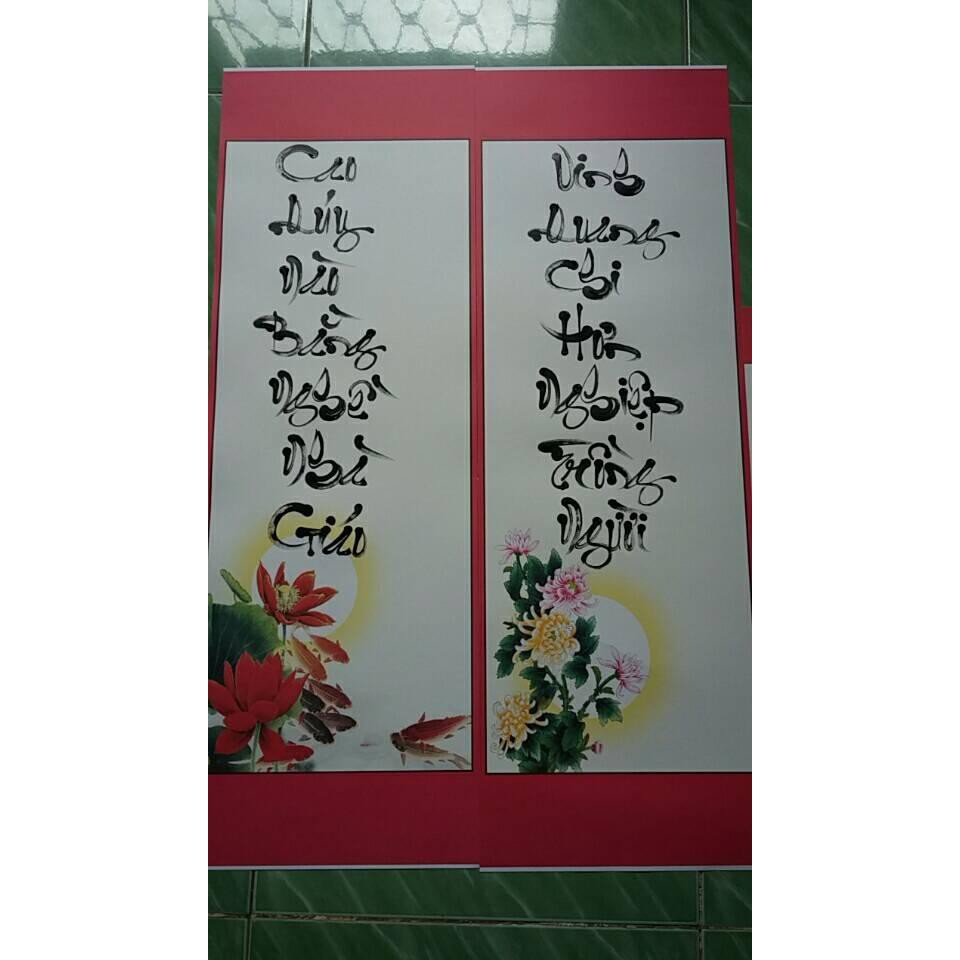 Cao
Quý
Nào
Bằng
Nghề
Nhà
Giáo
Vinh
Quang
Chi
Hơn
Nghiệp
Trồng
Người